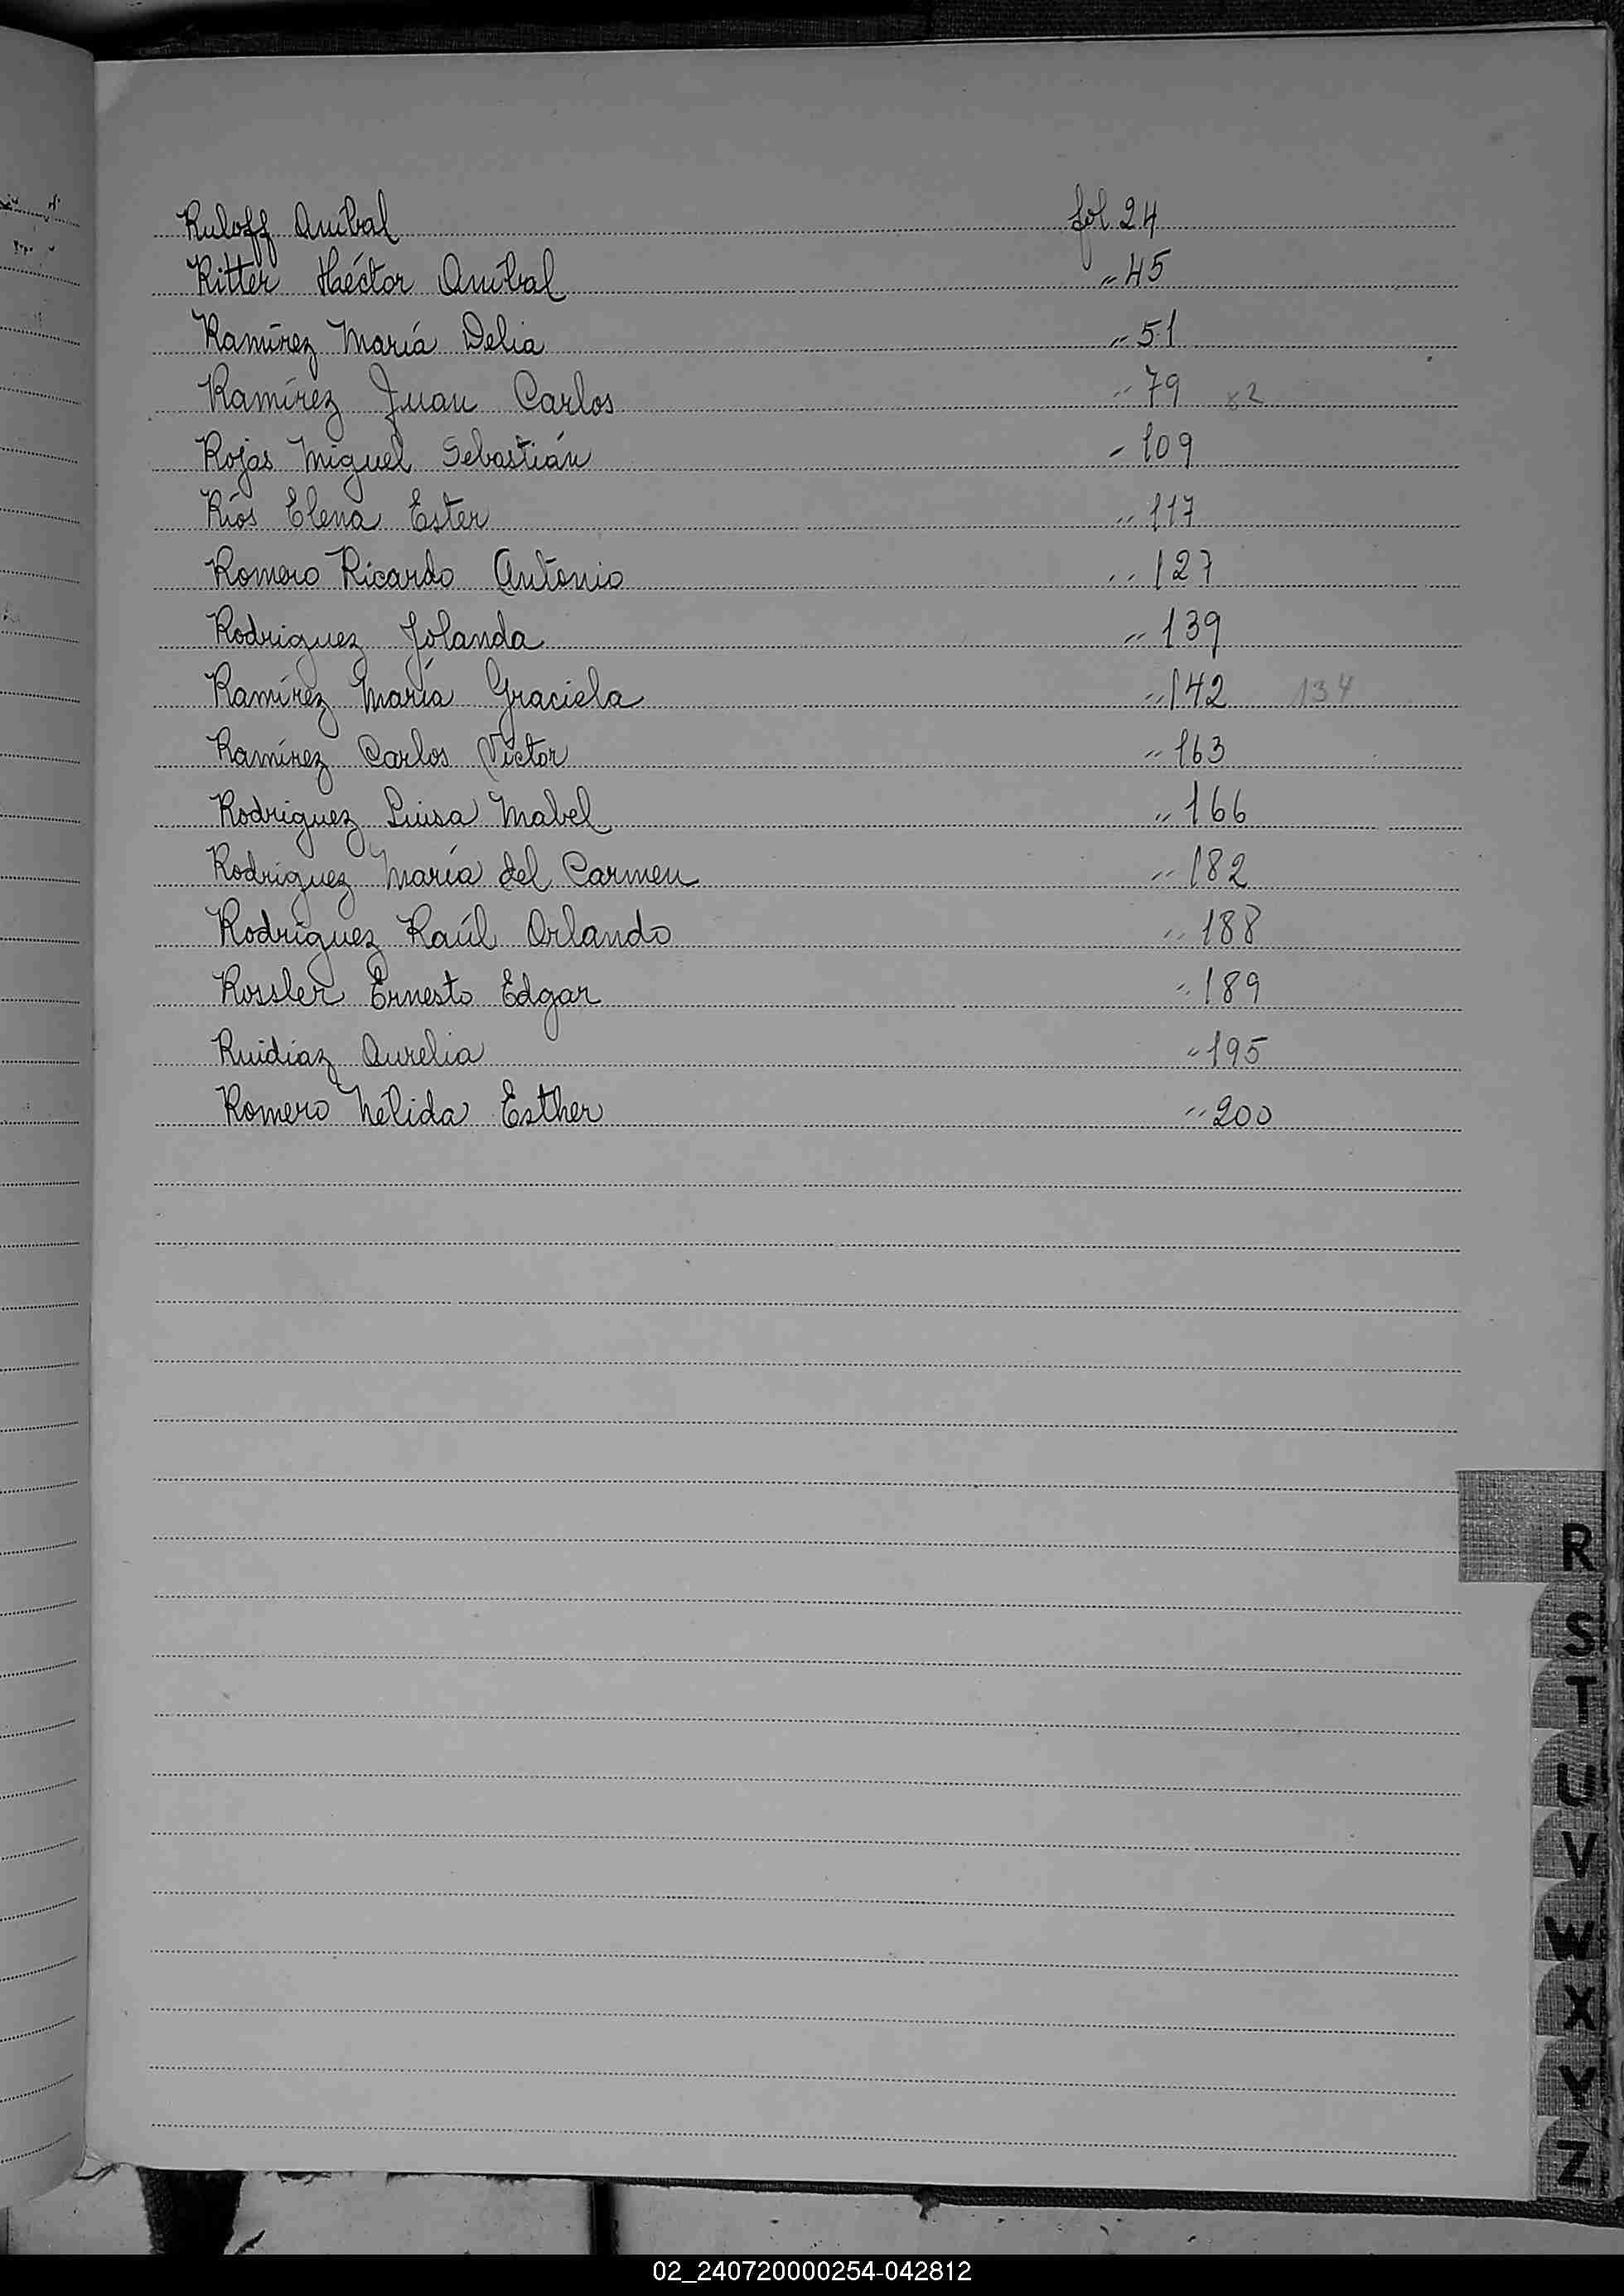 Ruloff Aníbal fol 24
Ritter Héctor Aníbal " 45
Ramírez María Delia " 51
Ramírez Juan Carlos " 79 82
Rojas Miguel Sebastián " 109
Ríos Elena Ester " 117
Romero Ricardo Antonio " 127
Rodriguez Jolanda " 139
Ramírez María Graciela " 142 134
Ramírez Carlos Víctor " 163
Rodriguez Luisa Mabel " 166
Rodriguez María del Carmen " 182
Rodriguez Raúl Orlando " 188
Rossler Ernesto Edgar " 189
Ruidíaz Aurelia " 195
Romero Nélida Esther " 200
R
S
T
U
V
W
X
Y
Z
02_240720000254-042812